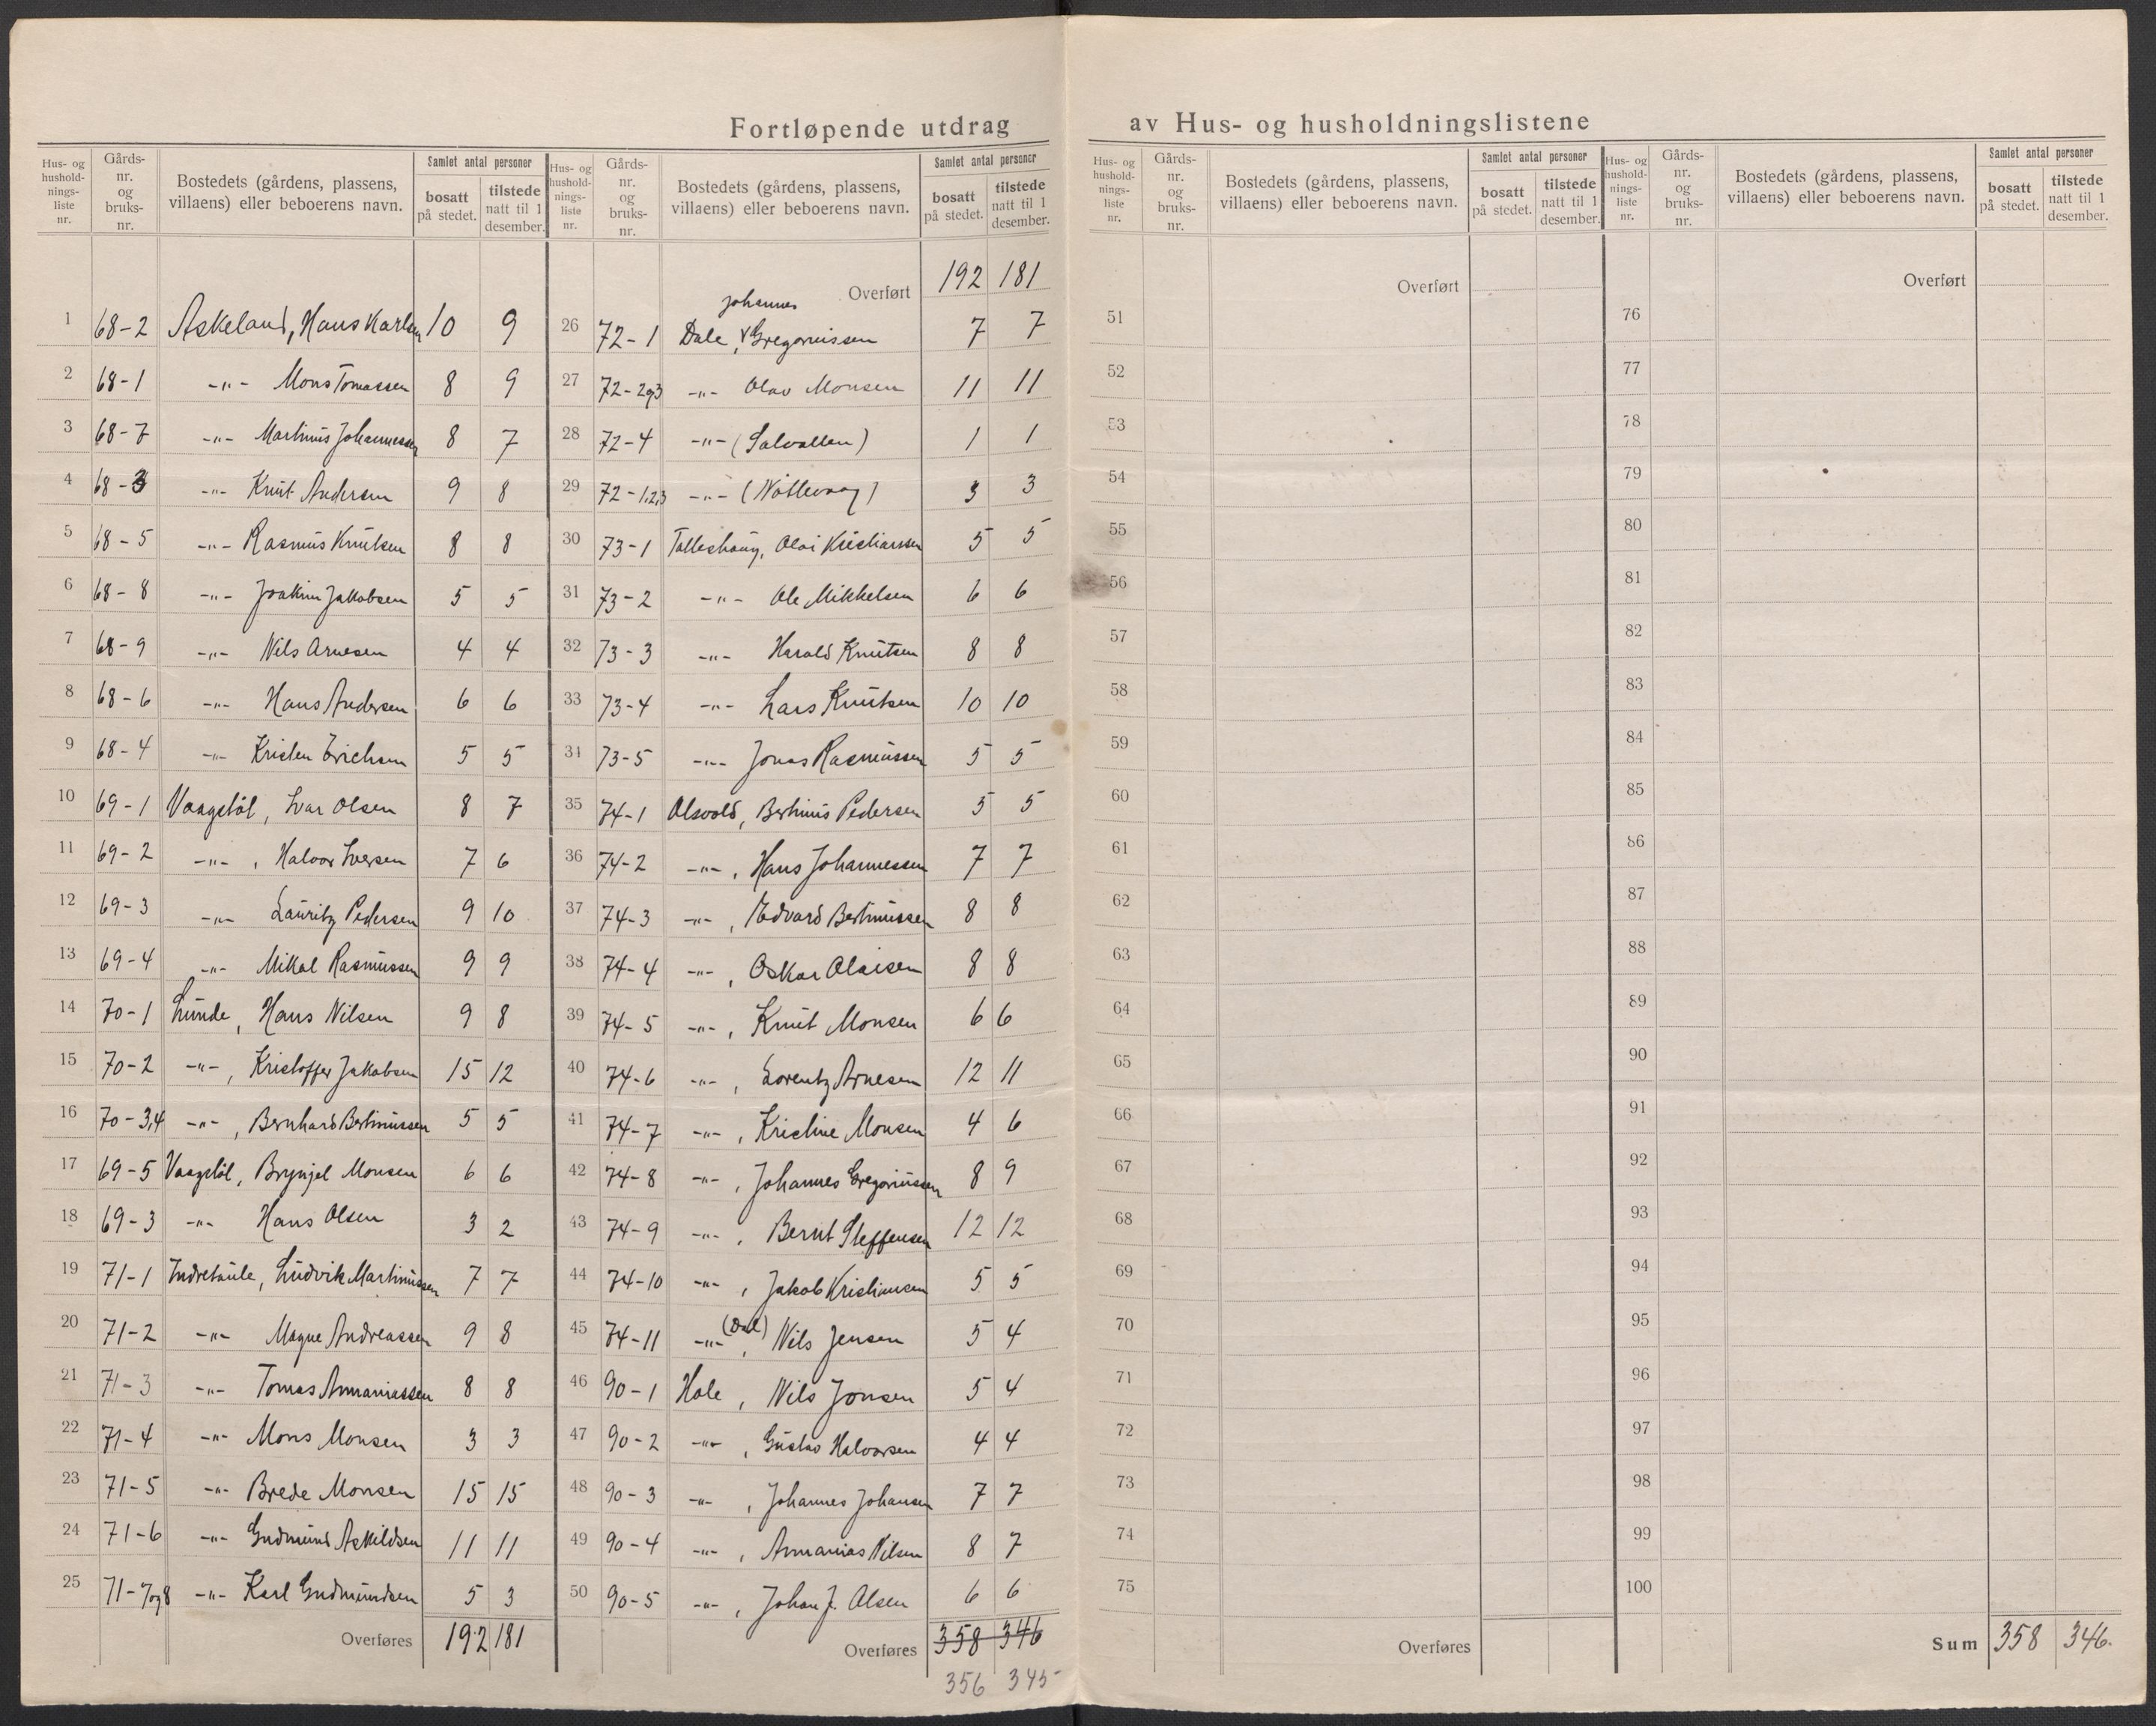 Fortløpende utdrag av Hus- og husholdningslistene
Hus- og hushold-nings-liste nr. | Gårds-nr. og bruks-nr. | Bostedets (gårdens, plassens, villaens) eller beboerens navn. | Samlet antal personer | bosatt på stedet. | tilstede natt til 1 desember.
1 68-2 Askeland, Hans Karlsen 10 9
2 68-1 -"- Mons Tomassen 8 9
3 68-7 -"- Martinus Johannessen 8 7
4 68-3 -"- Knut Andersen 9 8
5 68-5 -"- Rasmus Knutsen 8 8
6 68-8 -"- Joakim Jakobsen 5 5
7 68-9 -"- Nils Arnesen 4 4
8 68-6 -"- Hans Andersen 6 6
9 68-4 -"- Kristen Erichsen 5 5
10 69-1 Vaagstöl, Ivar Olsen 8 7
11 69-2 -"-, Halvor Iversen 7 6
12 69-3 -"- Lauritz Pedersen 9 10
13 69-4 -"- Mikal Rasmussen 9 9
14 70-1 Lunde, Hans Nilsen 9 8
15 70-2 -"-, Kristoffer Jakobsen 15 12
16 70-3,4 -"-, Bernhard Bertinussen 5 5
17 69-5 Vaagstöl, Brynjel Monsen 6 6
18 69-3 -"- Hans Olsen 3 2
19 71-1 Indretaule, Ludvik Martinussen 7 7
20 71-2 -"- Magne Andreassen 9 8
21 71-3 -"- Tomas Annaniassen 8 8
22 71-4 -"- Mons Monsen 3 3
23 71-5 -"- Brede Monsen 15 15
24 71-6 -"- Gudmund Askildsen 11 11
25 71-7og8 -"- Karl Gudmundsen 5 3
Overføres 192 181
Hus- og hushold-nings-liste nr. | Gårds-nr. og bruks-nr. | Bostedets (gårdens, plassens, villaens) eller beboerens navn. | Samlet antal personer | bosatt på stedet. | tilstede natt til 1 desember.
Overført 192 181
Johannes
26 72-1 Dale, Gregoriussen 7 7
27 72-2og3 -"- Olav Monsen 11 11
28 72-4 -"- (Salvallen) 1 1
29 72-1,2,3 -"- 3 3
30 73-1 Tolleshaug, Olai Kristianssen 5 5
31 73-2 -"- Ole Mikkelsen 6 6
32 73-3 -"- Harald Knutsen 8 8
33 73-4 -"- Lars Knutsen 10 10
34 73-5 -"- Jonas Rasmussen 5 5
35 74-1 Olsvold, Bertinus Pedersen 5 5
36 74-2 -"-, Hans Johannessen 7 7
37 74-3 -"-, Edvard Bertinussen 8 8
38 74-4 -"-, Oskar Olaisen 8 8
39 74-5 -"-, Knut Monsen 6 6
40 74-6 -"-, Lorentz Arnesen 12 11
41 74-7 -"-, Kristine Monsen 4 6
42 74-8 -"-, Johannes Gregoriussen 8 9
43 74-9 -"-, Bernt Steffensen 12 12
44 74-10 -"-, Jakob Kristiansen 5 5
45 74-11 -"- (Dal), Nils Jensen 5 4
46 90-1 Hole, Nils Jonsen 5 4
47 90-2 -"-, Gustav Halvorsen 4 4
48 90-3 -"-, Johannes Johansen 7 7
49 90-4 -"-, Annanias Nilsen 8 7
50 90-5 -"-, Johan J. Olsen 6 6
Overføres 358 346
356 345
Hus- og hushold-nings-liste nr. | Gårds-nr. og bruks-nr. | Bostedets (gårdens, plassens, villaens) eller beboerens navn. | Samlet antal personer | bosatt på stedet. | tilstede natt til 1 desember.
Overført
51
52
53
54
55
56
57
58
59
60
61
62
63
64
65
66
67
68
69
70
71
72
73
74
75
Overføres
Hus- og hushold-nings-liste nr. | Gårds-nr. og bruks-nr. | Bostedets (gårdens, plassens, villaens) eller beboerens navn. | Samlet antal personer | bosatt på stedet. | tilstede natt til 1 desember.
Overført
76
77
78
79
80
81
82
83
84
85
86
87
88
89
90
91
92
93
94
95
96
97
98
99
100
Sum 358 346.